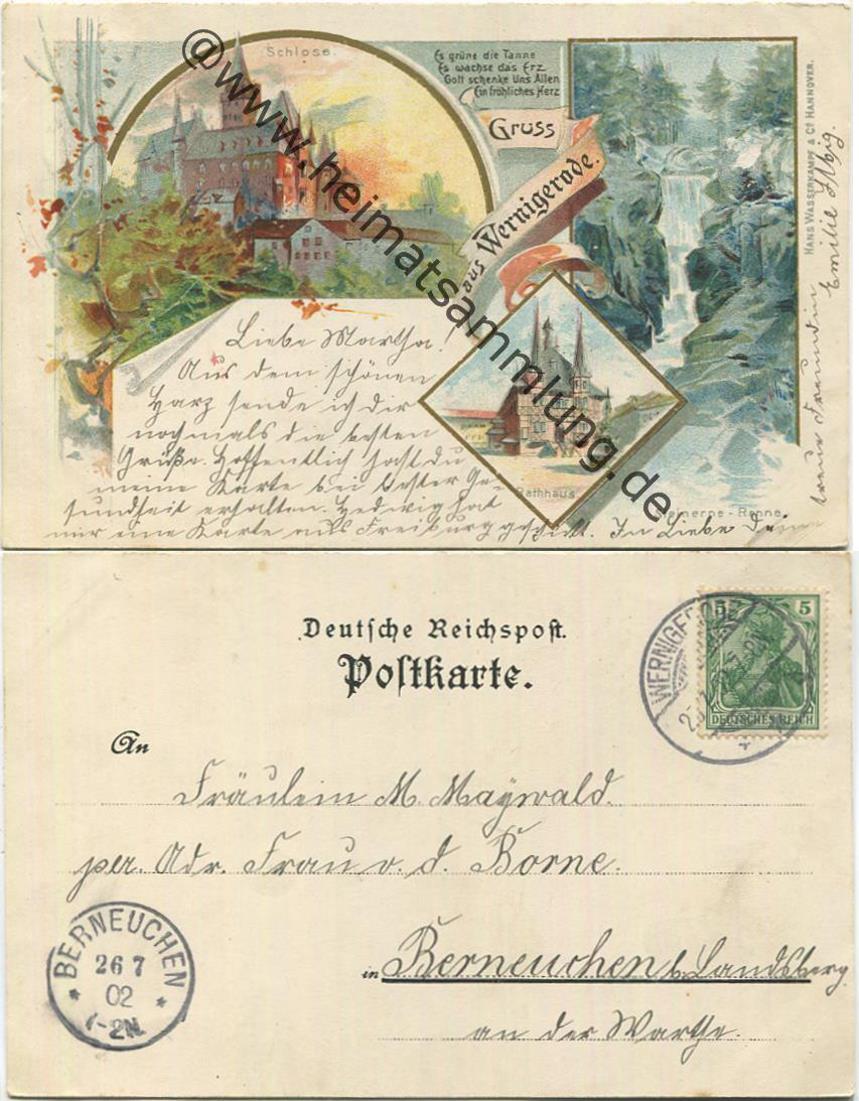 Schloss.
Es grüne die Tanne
Es wachse das Erz
Gott schenke Uns Allen
Ein fröhliches Herz
Gruss
aus Wernigerode.
HANS WASSERKAMPF & Co HANNOVER.
@www.heimatsammlung.de
Liebe Martha!
Aus dem schönen
Harz sende ich dir
nochmals die besten
Grüße. Hoffentlich hast du
meine Karte bei bester Ge-
sundheit erhalten. Hedwig hat
mir eine Karte aus Freiburg geschickt. In Liebe Deine
treue Freundin
Emilie
Rathhaus.
Steinerne-Renne.
Deutsche Reichspost.
Postkarte.
WERNIGERODE
5
DEUTSCHES REICH
An
Fräulein M. Maywald.
per. Adr. Frau v. d. Borne.
in Berneuchen b. Landsberg
an der Warthe.
BERNEUCHEN
26 7
02
1-2N.